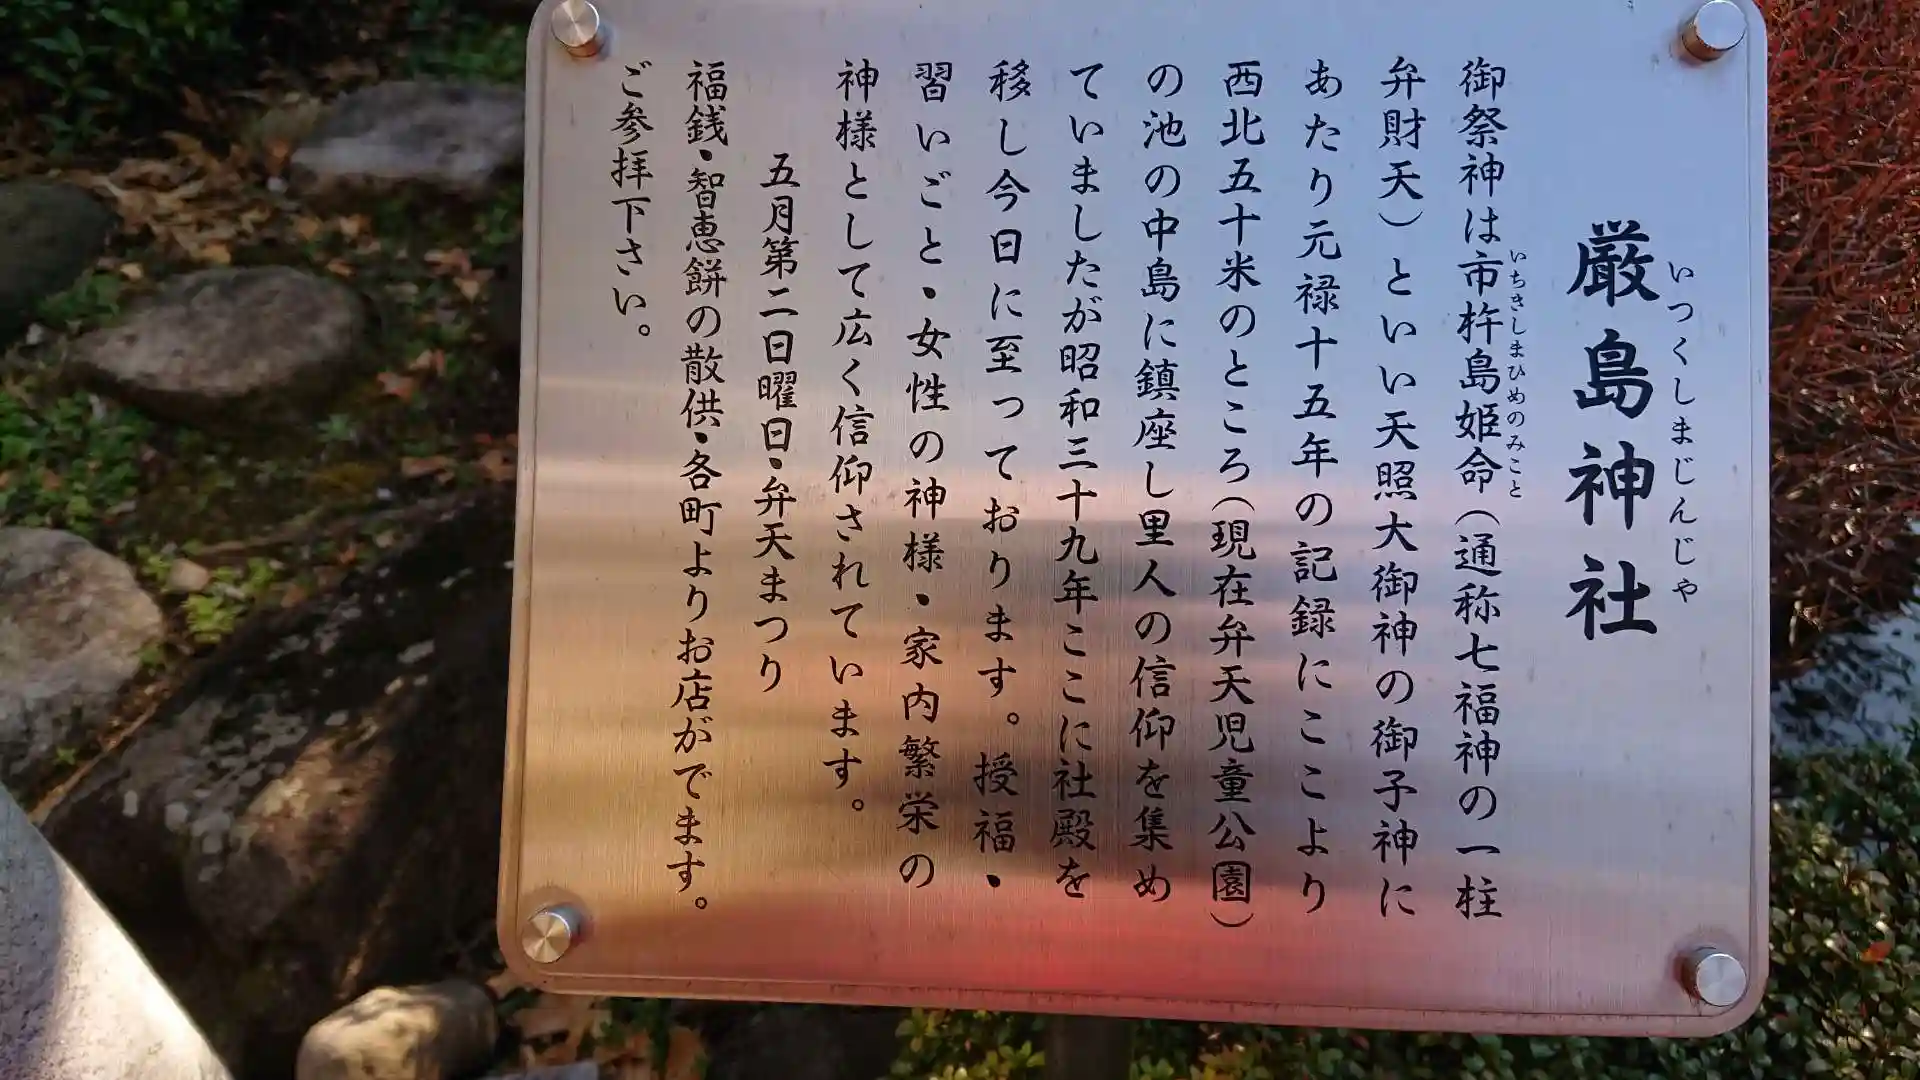 厳島神社
いつくしまじんじゃ
御祭神は市杵島姫命（通称七福神の一柱
いちきしまひめのみこと
弁財天）といい天照大御神の御子神に
あたり元禄十五年の記録にここより
西北五十米のところ（現在弁天児童公園）
の池の中島に鎮座し里人の信仰を集め
ていましたが昭和三十九年ここに社殿を
移し今日に至っております。授福・
習いごと・女性の神様・家内繁栄の
神様として広く信仰されています。
五月第二日曜日・弁天まつり
福銭・智恵餅の散供・各町よりお店がでます。
ご参拝下さい。